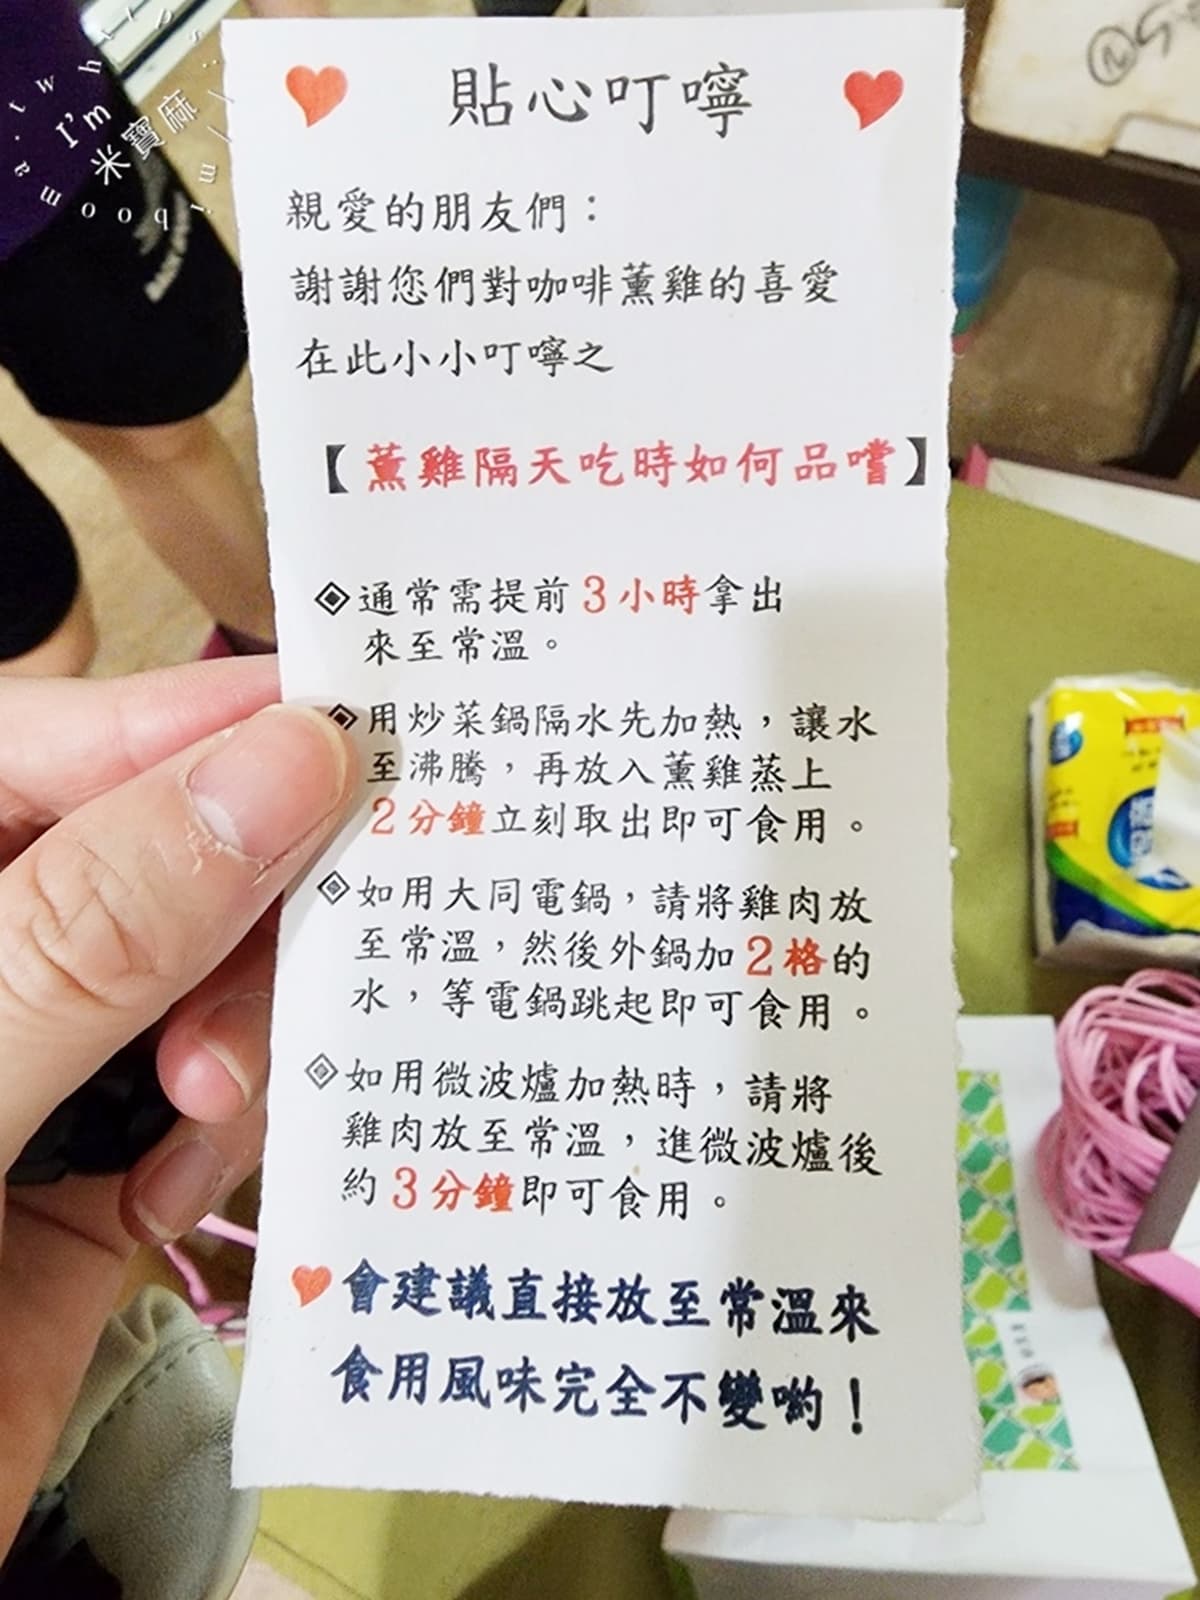 I'm
米寶麻
貼心叮嚀
親愛的朋友們：
謝謝您們對咖啡薰雞的喜愛
在此小小叮嚀之
【薰雞隔天吃時如何品嚐】
◈通常需提前3小時拿出
來至常溫。
◈用炒菜鍋隔水先加熱，讓水
至沸騰，再放入薰雞蒸上
2分鐘立刻取出即可食用。
◈如用大同電鍋，請將雞肉放
至常溫，然後外鍋加2格的
水，等電鍋跳起即可食用。
◈如用微波爐加熱時，請將
雞肉放至常溫，進微波爐後
約3分鐘即可食用。
會建議直接放至常溫來
食用風味完全不變喲！